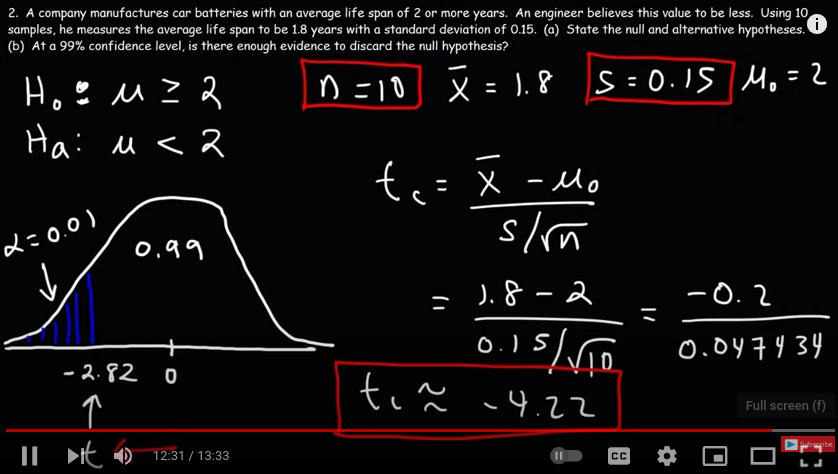 2. A company manufactures car batteries with an average life span of 2 or more years. An engineer believes this value to be less. Using 10
samples, he measures the average life span to be 1.8 years with a standard deviation of 0.15. (a) State the null and alternative hypotheses.
(b) At a 99% confidence level, is there enough evidence to discard the null hypothesis?
H₀: μ ≥ 2
n = 10
x̄ = 1.8
s = 0.15
μ₀ = 2
Ha: μ < 2
t_c = (x̄ - μ₀) / (s/√n)
α = 0.01
0.99
= (1.8 - 2) / (0.15/√10) = -0.2 / 0.047434
-2.82 0
t_c ≈ -4.22
t
Full screen (f)
Subscribe
12:31 / 13:33
CC